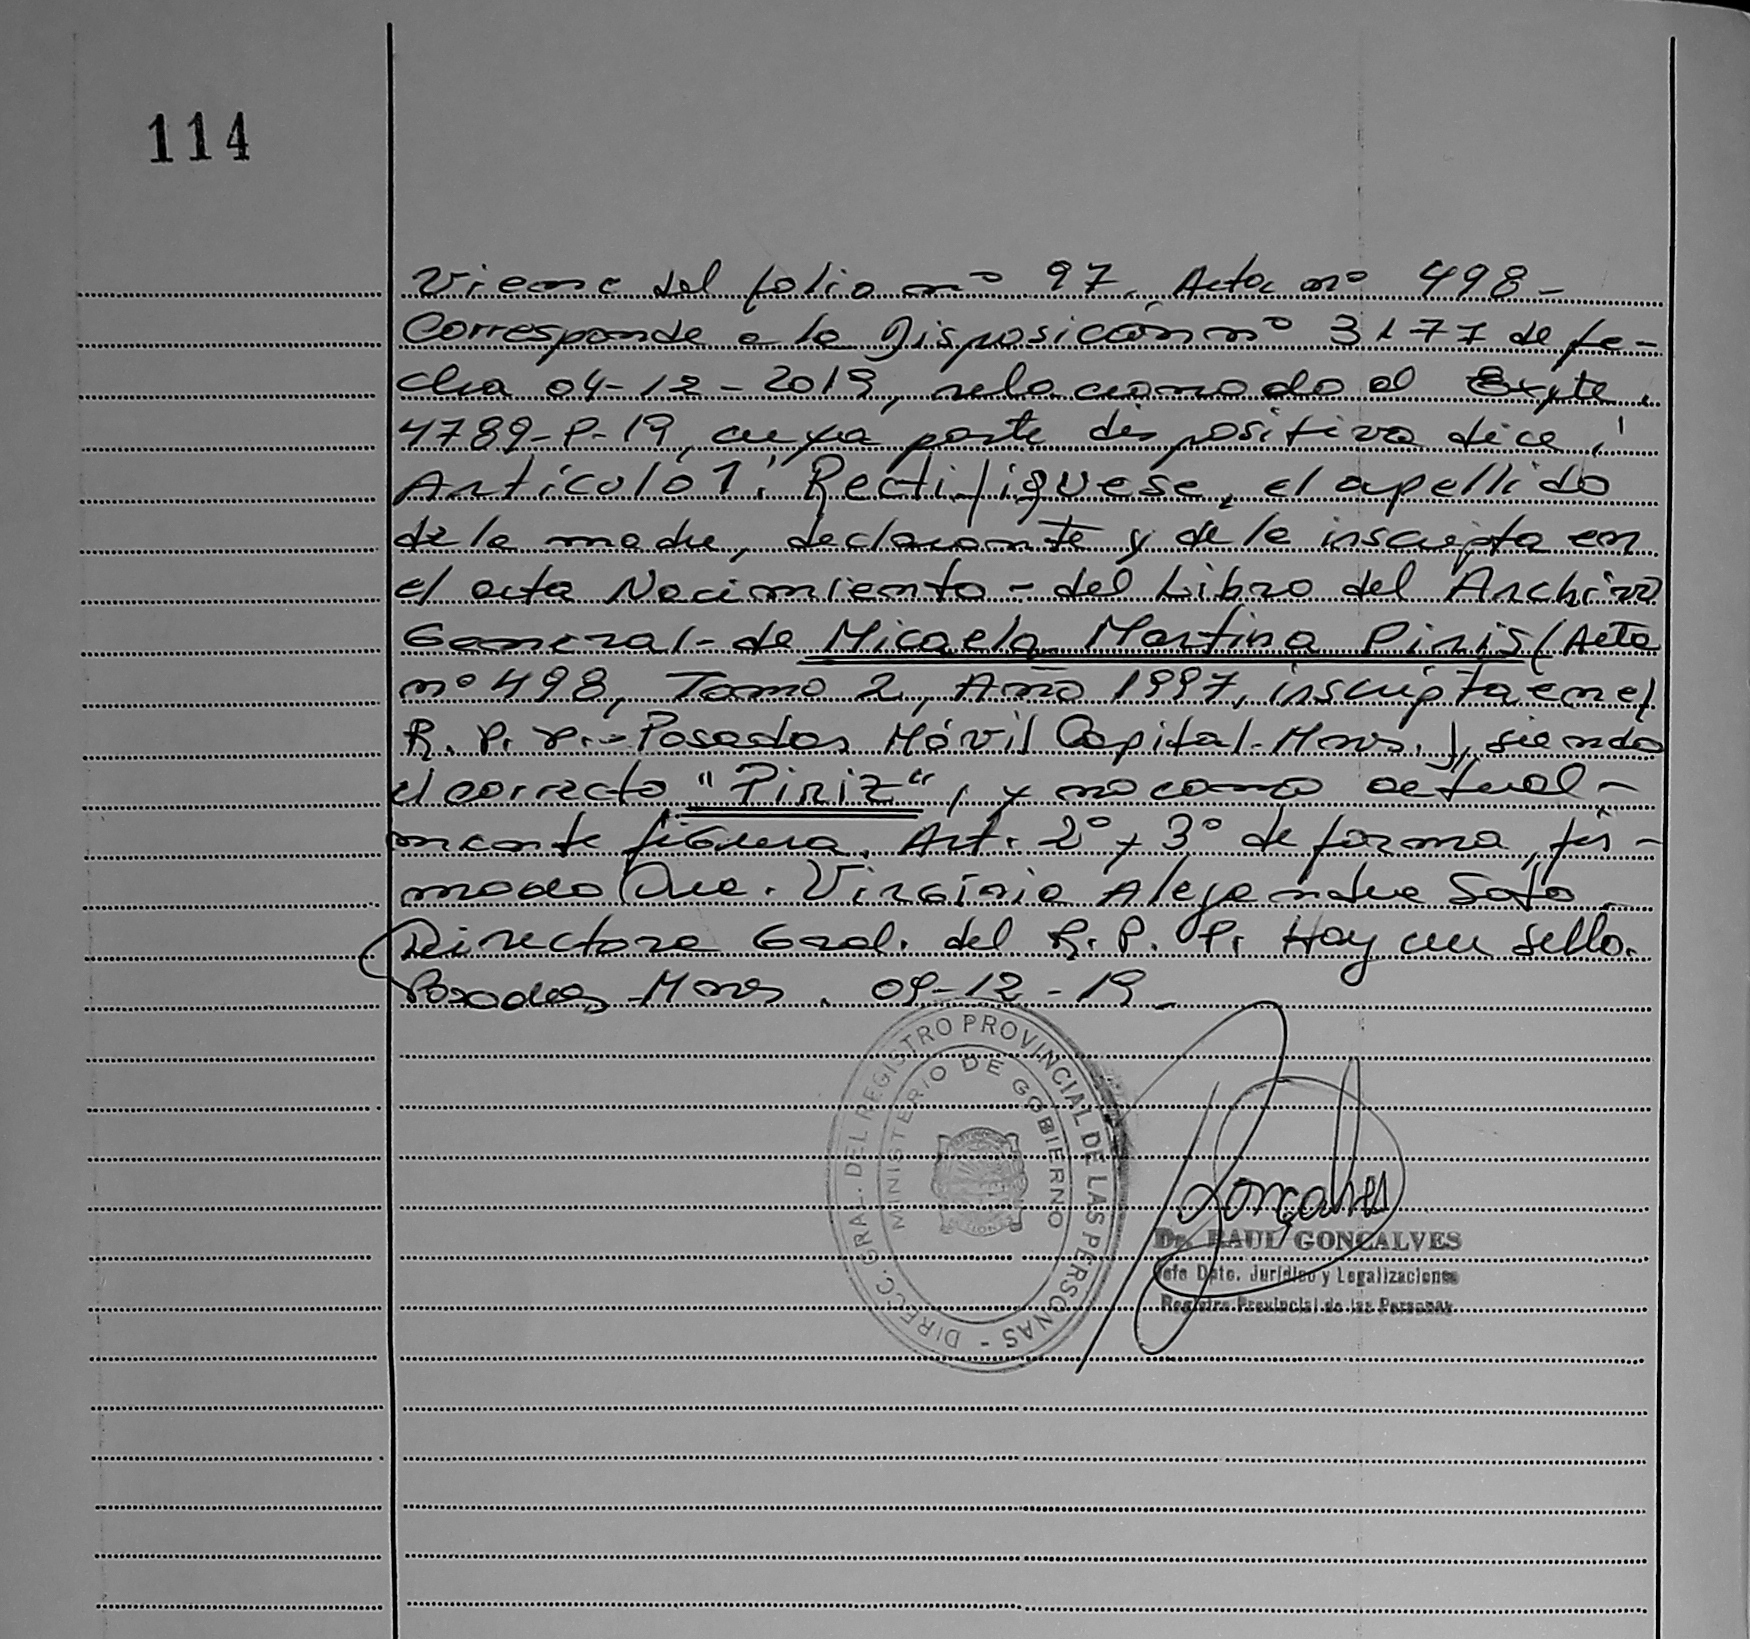 114
Viene del folio nº 97. Acta nº 498-
Corresponde a la Disposición nº 3177 de fe-
cha 04-12-2019, relacionado al Expte.
4789-P-19, cuya parte dispositiva dice:
Artículo 1: Rectifíquese, el apellido
de la madre, declarante y de la inscripta en
el acta Nacimiento - del Libro del Archivo
General - de Micaela Martina Piris (Acta
nº 498, Tomo 2, Año 1997, inscripta en el
R. P. P. - Posadas Móvil Capital - Mnes.), siendo
el correcto "Piriz", y no como actual-
mente figura. Art. 2º y 3º de forma, fir-
mado Dra. Virginia Alejandra Soto.
Directora Gral. del R. P. P. Hay un sello.
Posadas Mnes. 09-12-19
DIRECC. GRAL. DEL REGISTRO PROVINCIAL DE LAS PERSONAS -
MINISTERIO DE GOBIERNO
Gonçalves
Dr. RAUL GONCALVES
Jefe Dpto. Jurídico y Legalizaciones
Registro Provincial de las Personas